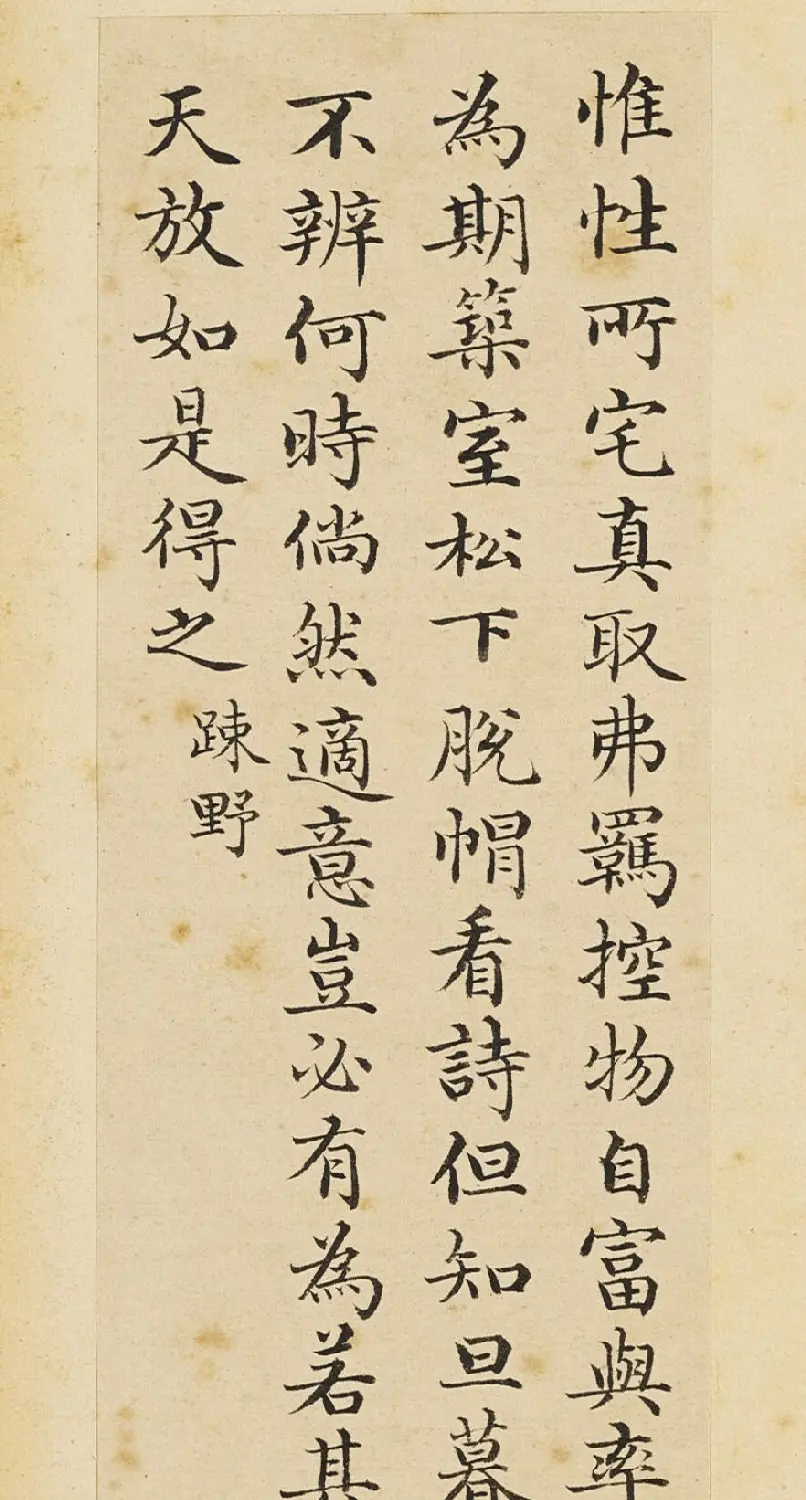 惟性所宅真取弗羈控物自富與率
為期築室松下脫帽看詩但知旦暮
不辨何時倘然適意豈必有為若其
天放如是得之
疎野